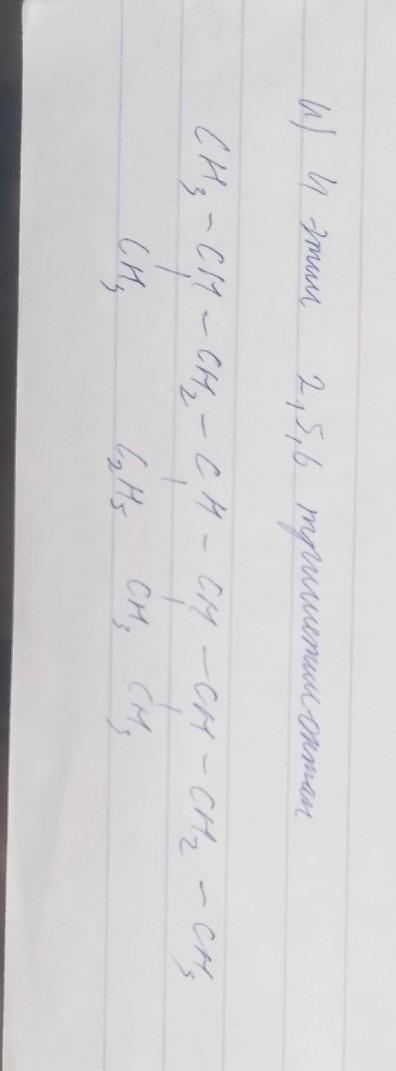 4) 4 этил 2,5,6 триметилоктан
CH₃ – CH – CH₂ – CH – CH – CH – CH₂ – CH₃
CH₃ C₂H₅ CH₃ CH₃